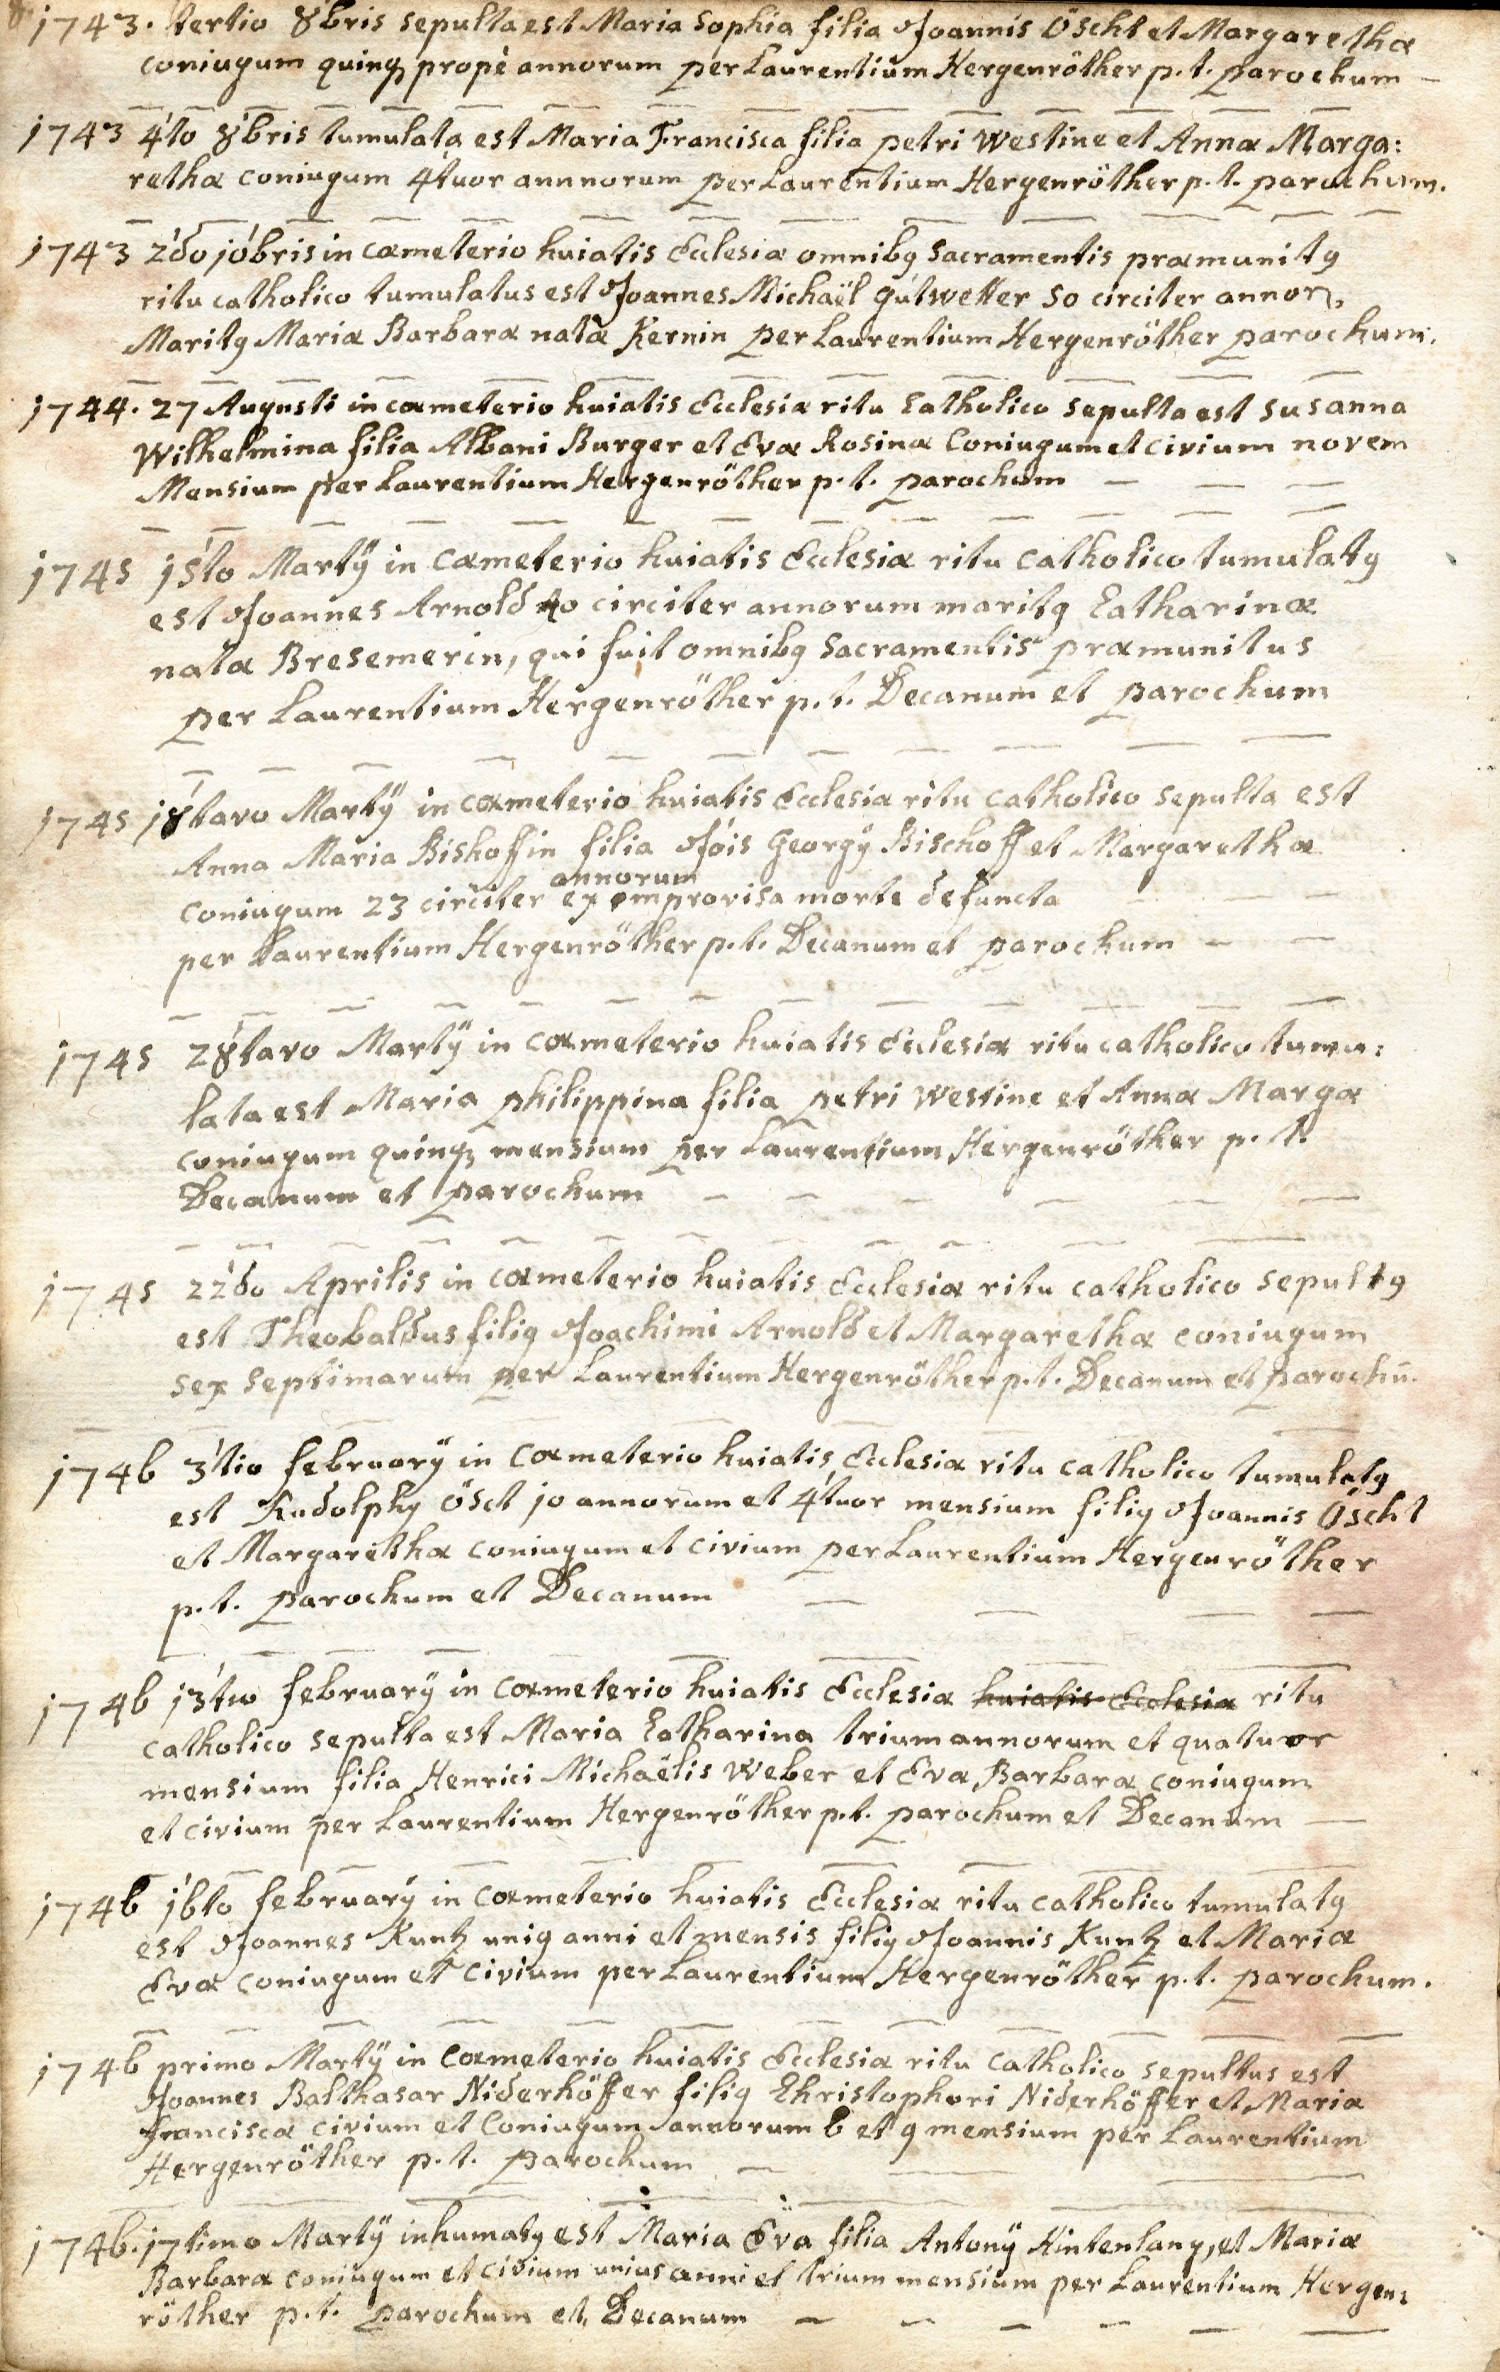 1743. tertio 8bris sepulta est Maria Sophia filia Joannis Öscht et Margarethæ
coniugum quinq prope annorum per Laurentium Hergenröther p. t. parochum
1743 4to 8bris tumulata est Maria Francisca filia petri Westine et Annæ Marga:
rethæ coniugum 4tuor annnorum per Laurentium Hergenröther p. t. parochum.
1743 2do 10bris in cæmeterio huiatis Ecclesiæ omnibq Sacramentis præmunitq
ritu catholico tumulatus est Joannes Michaël Gutwetter 50 circiter annor.
Maritq Mariæ Barbaræ natæ Kernin per Laurentium Hergenröther parochum.
1744. 27 Augusti in cæmeterio huiatis Ecclesiæ ritu Catholico sepulta est Susanna
Wilhelmina filia Albani Burger et Evæ Rosinæ Coniugum et civium novem
Mensium per Laurentium Hergenröther p. t. parochum
1745 15to Martÿ in Cæmeterio huiatis Ecclesiæ ritu catholico tumulatq
est Joannes Arnold 40 circiter annorum maritq Catharinæ
natæ Bresemerin, qui fuit omnibq Sacramentis præmunitus
per Laurentium Hergenröther p. t. Decanum et parochum
1745 18tavo Martÿ in cæmeterio huiatis Ecclesiæ ritu catholico sepulta est
Anna Maria Bishoffin filia Jois Georgÿ Bischoff et Margarethæ
annorum
coniugum 23 circiter ex improvisa morte defuncta
per Laurentium Hergenröther p. t. Decanum et parochum
1745 28tavo Martÿ in cæmeterio huiatis Ecclesiæ ritu catholico tumu:
lata est Maria philippina filia petri Westine et Annæ Margæ
coniugum quinq mensium per Laurentium Hergenröther p. t.
Decanum et parochum
1745 22do Aprilis in cæmeterio huiatis Ecclesiæ ritu catholico sepultq
est Theobaldus filiq Joachimi Arnold et Margarethæ coniugum
sex septimarum per Laurentium Hergenröther p. t. Decanum et parochū.
1746 3tio februarÿ in Cæmeterio huiatis Ecclesiæ ritu catholico tumulatq
est Rudolphq Ösct 10 annorum et 4tuor mensium filiq Joannis Öscht
et Margarethæ coniugum et civium per Laurentium Hergenröther
p. t. parochum et Decanum
1746 13tio februarÿ in cæmeterio huiatis Ecclesiæ huiatis Ecclesiæ ritu
catholico sepulta est Maria Catharina trium annorum et quatuor
mensium filia Henrici Michaëlis Weber et Evæ Barbaræ coniugum
et civium per Laurentium Hergenröther p. t. parochum et Decanum
1746 16to februarÿ in cæmeterio huiatis Ecclesiæ ritu catholico tumulatq
est Joannes Kuntz uniq anni et mensis filiq Joannis Kuntz et Mariæ
Evæ coniugum et civium per Laurentium Hergenröther p. t. parochum.
1746 primo Martÿ in Cæmeterio huiatis Ecclesiæ ritu catholico sepultus est
Joannes Balthasar Niderhöffer filiq Christophori Niderhöffer et Mariæ
Franciscæ civium et Coniugum annorum 6 et 9 mensium per Laurentium
Hergenröther p. t. parochum
1746. 17timo Martÿ inhumatq est Maria Eva filia Antonÿ Hintenlang, et Mariæ
Barbaræ coniugum et civium unius anni et trium mensium per Laurentium Hergen:
röther p. t. parochum et Decanum